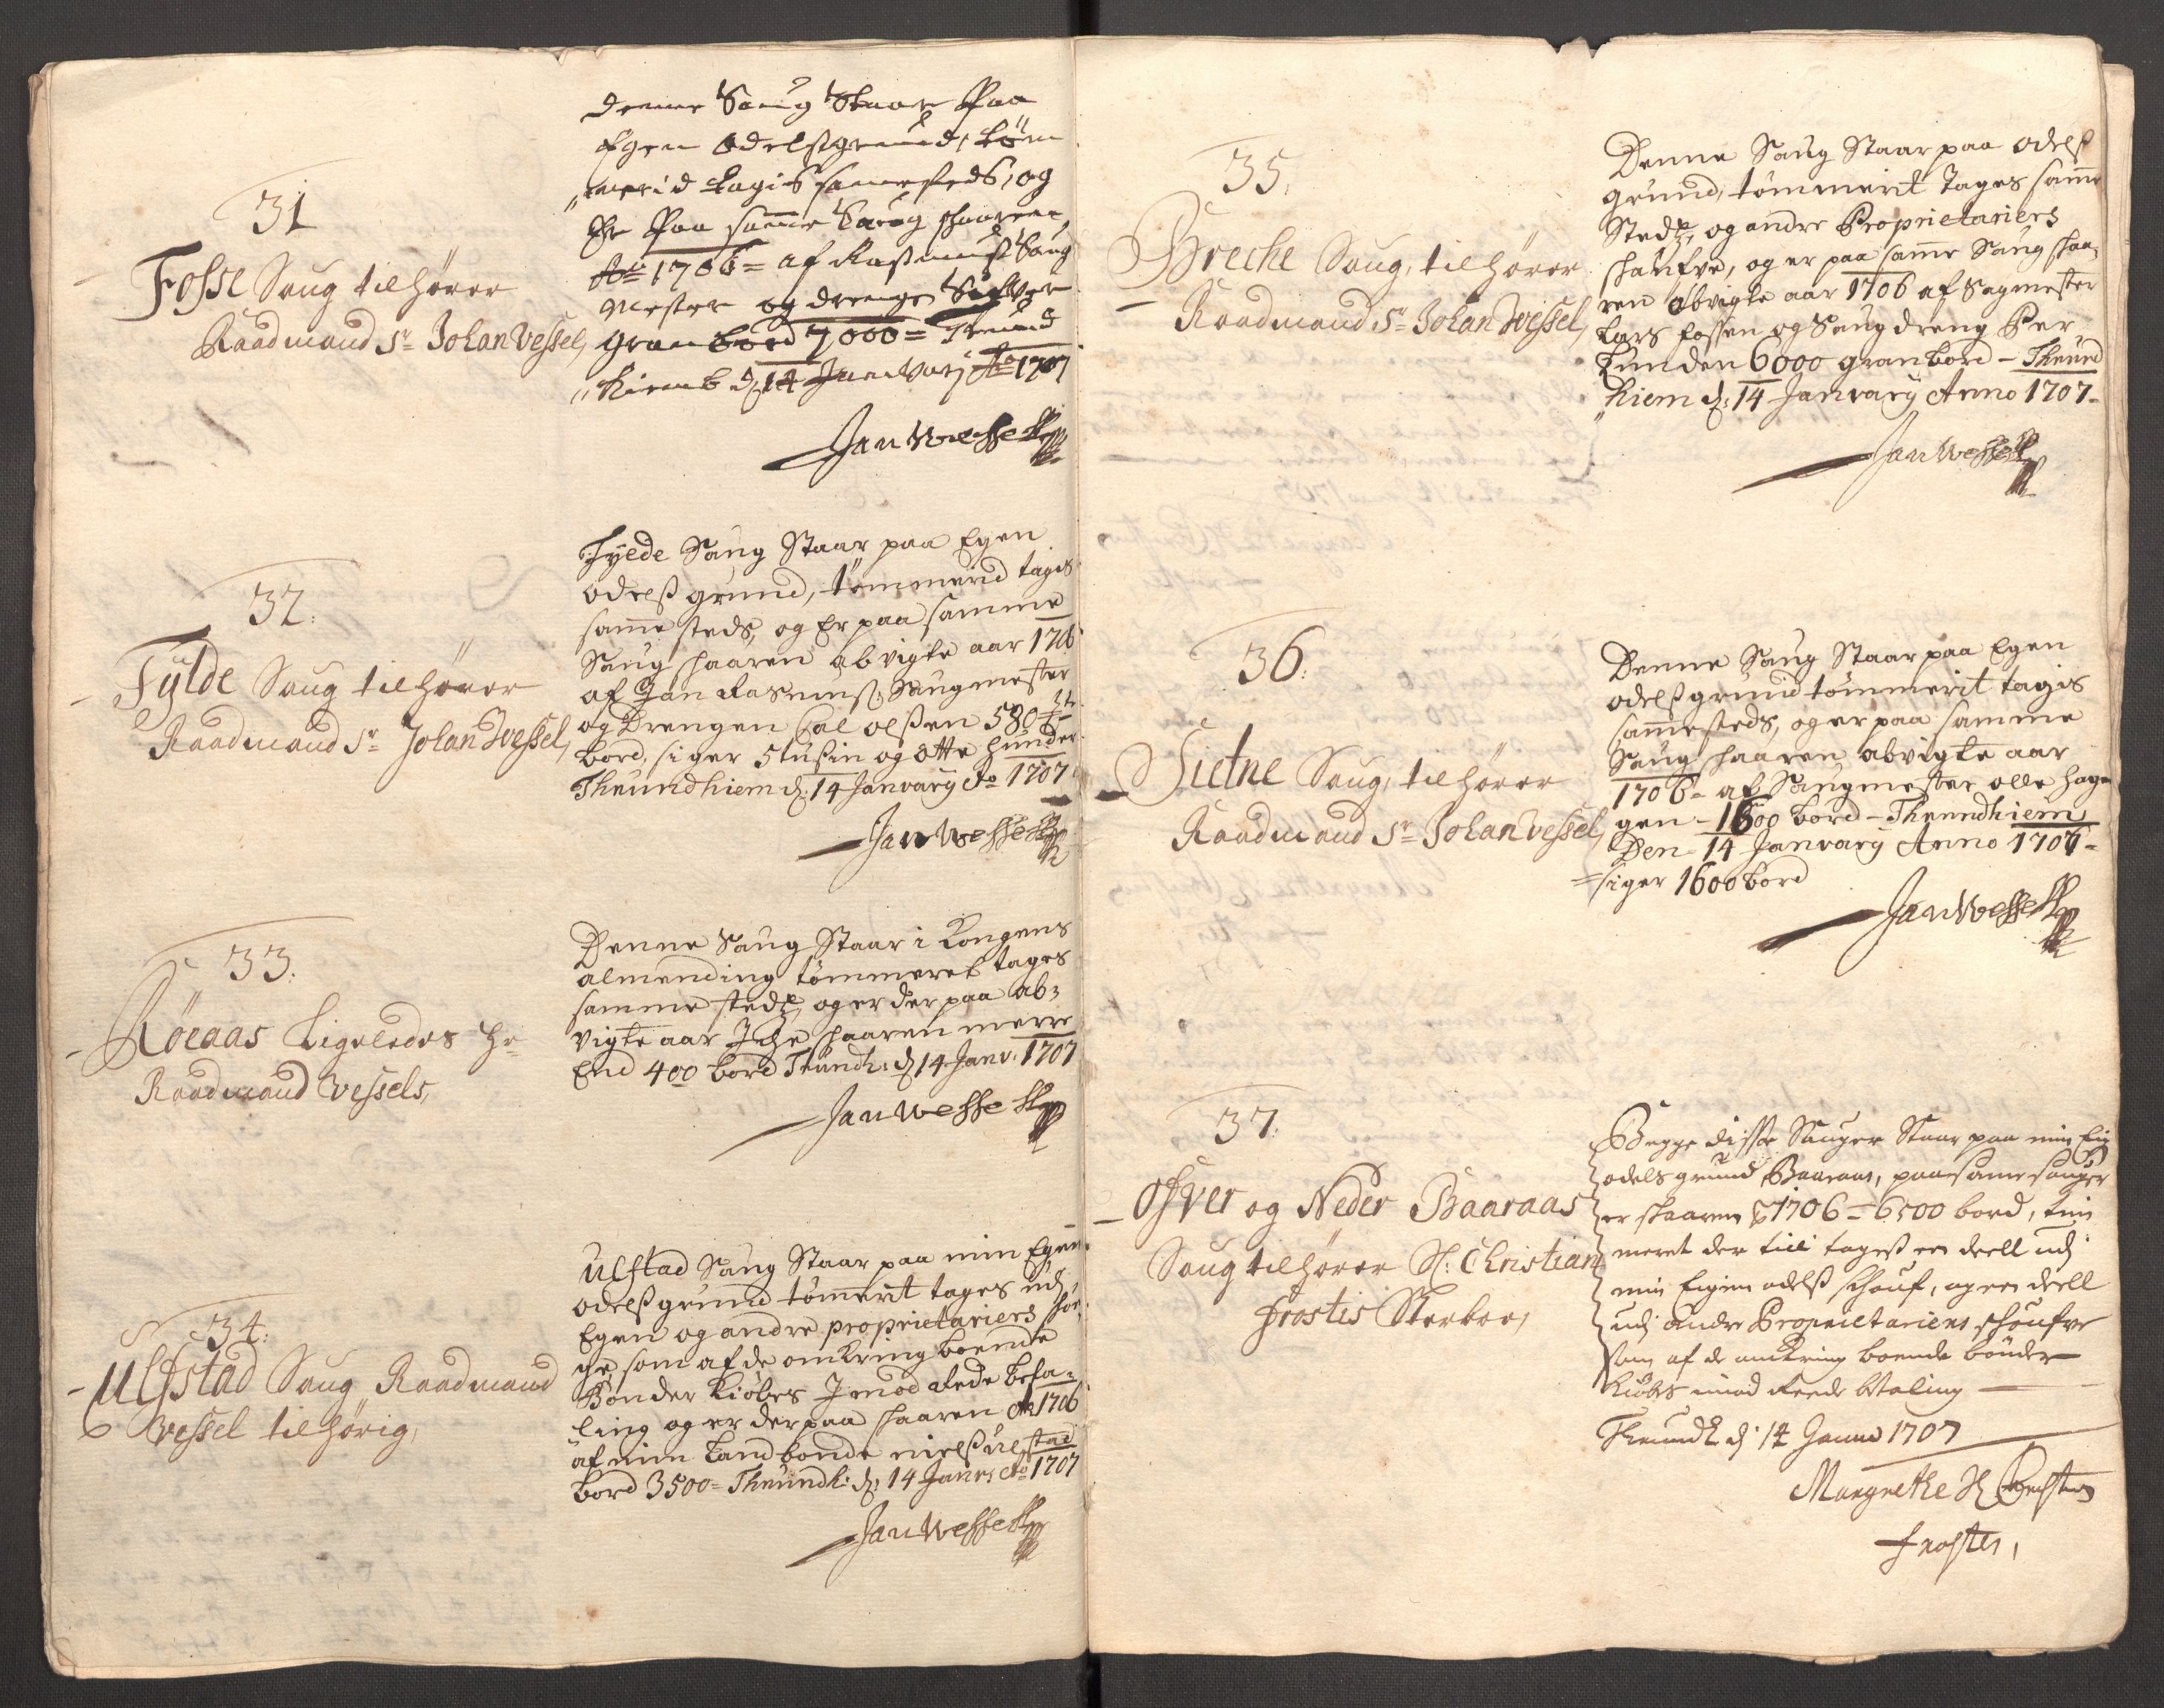 31
Fosse Saug tilhörer
Raadmand Sr Johan Vessel,
denne Saug Staar Paa
Egen Odelsgrund, töm
merid tagis sammesteds, og
Er Paa samme Saug skaaren
Ao 1706 = af Rasmus Saug
Mester og drenge
gran bord 7000 = Trund
hiemb d: 14 Janwarj Ao 1707
Jan Wessell
32.
Fylde Saug tilhörer
Raadmand Sr Johan Wessel,
Fylde Saug Staar paa Egen
odelß grund, tömmerid tagis
samme steds, og Er paa samme
Saug skaaren abvigte aar 1706
af Jan Rasmuß: Saugmester
og Drengen Ole olßen 580
bord, siger 5 tußin og otte hunder
Thrundhiem d: 14 Janvary Ao 1707
Jan Wessell
33.
Röeaas Ligeledes hr
Raadmand Vessels,
Denne Saug Staar i Kongens
almending tömmeret tages
samme stedz, og er der paa ab-
vigte aar Iche skaaren merre
End 400 bord Trundh: d 14 Janv: 1707
Jan Wessell
34.
Ulfstad Saug Raadmand
Vessel tilhörig,
Ulstad Saug Staar paa min Egen
odelß grund tömmerit tages udj
Egen og andre proprietariers sko-
ge, som af de omkring boende
Bönder kiöbes Imod rede beta-
ling og er der paa skaaren Ao 1706
af min Landbonde nielß ulfstad
bord 3500 = Thrundh: d: 14 Janv: Ao 1707
Jan Wessell
35.
Breche Saug, tilhörer
Raadmand Sr Johan Wessel,
Denne Saug Staar paa odelß
grund, tömmerit Tages samme
Stedz, og andre Proprietariers
skaufve, og er paa samme Saug skaa-
ren abvigte aar 1706 af Sagmester
Lars Fossen og Saugdreng Per
Lunden 6000 granbord - Thrund
hiem d: 14 Janvary Anno 1707 -
Jan Wessell
36.
Sietne Saug, tilhörer
Raadmand Sr Johan Vessel,
Denne Saug Staar paa Egen
odelß grund tömmerit tagis
sammesteds, og er paa samme
Saug skaaren abvigte aar
1706 - af Saugmester olle hage
gen - 1600 bord - Thrundhiem
Den - 14 Janvary Anno 1707 -
= siger 1600 bord
Jan Wessell
37.
Ofver og Neder Baaraas
Saug tilhörer Sl: Christian
Frostis Sterboe,
Begge disse Sauger Staar paa min Eig
odels grund Baaraas, paa samme sauger
er skaaren 1706 - 6500 bord, tim
meret der till tages een deell udj
min Eigen odelß schouf, og een deell
udj andre Proprietariers schoufve
som af de omkring boende bönder
kiöbes imod Reede betaling
Thrundh d: 14 Janu 1707
Margrethe Sl Christen
Frostes,